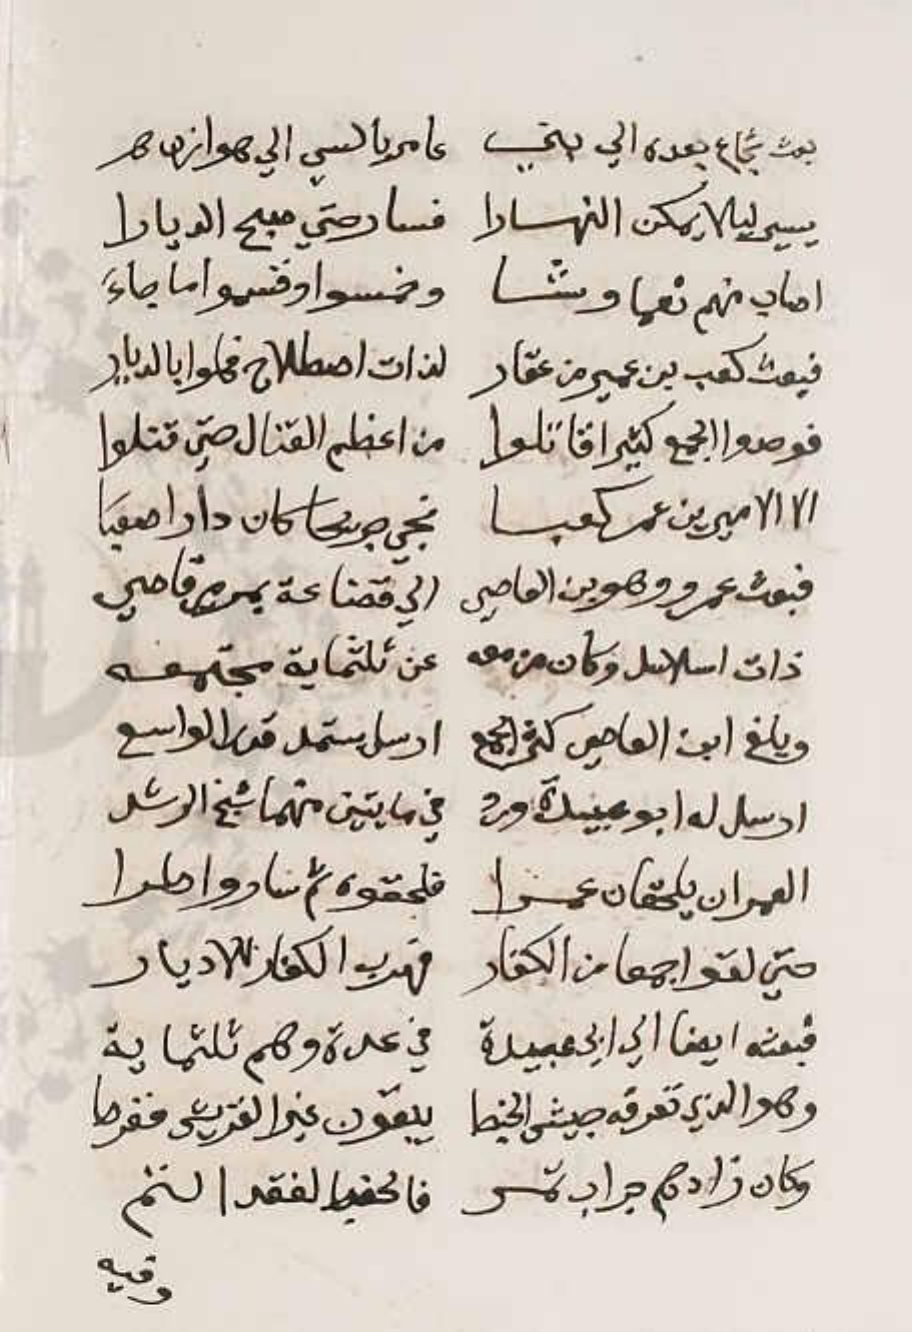 بعث شجاع بعده الي بني عامر بالسي الي هوازن
يسير ليلا يمكن النهارا فسار حتي صبح الديارا
اصاب منهم نعما وشا وخمسوا وقسموا ما جاء
فبعث كعب بن عمير من غفار لذات اصطلاح بالديار
فوجدوا الجمع كثيرا قاتلوا من اعظم القتال حتي قتلوا
الا الامير بن عمر كعبا نجي جريحا كان دارا صعبا
فبعث عمرو وهو بن العاصي الي قضاعة قاصي
ذات اسلاسل وكان من معه عن ثلثماية مجتمعه
وبلغ ابن العاص كثر الجمع ارسل يستمد قدر الواسع
ارسل له ابو عبيدة ورد في مايتين منهما شيخ الرشد
العمران يلحقان عمرا فلحقوه ثم ساروا طرا
حتي لقوا جمعا من الكفار فهرب الكفار للاديار
فبعثه ايضا الي ابي عبيدة في عدة وهم ثلثماية
وهو الذي تعرفه جيش الخبط يبغون عير القريش فقرط
وكان زادهم جراب تمر
وفيه